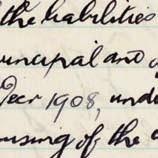 the liabilities
principal and
Year 1908, unde
ousing of the